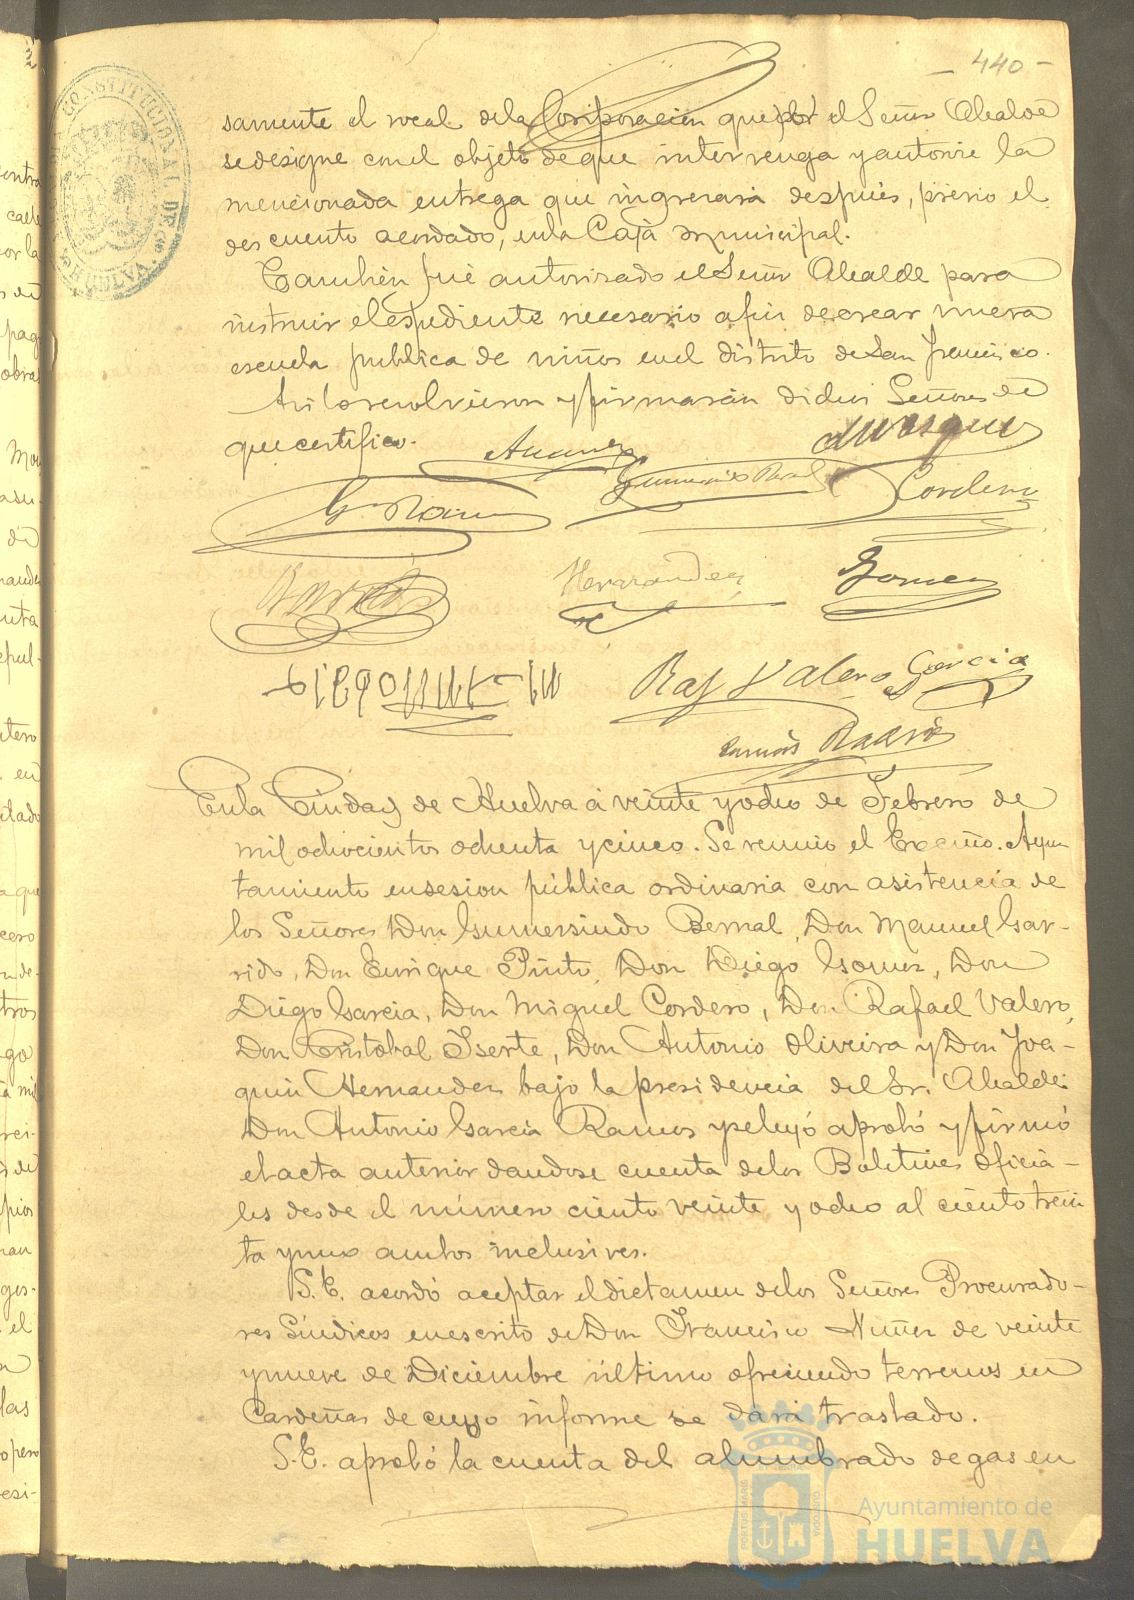 - 440 -
samente el vocal de la Corporacion que por el Señor Alcalde
se designe con el objeto de que intervenga y autorice la
mencionada entrega que ingresará despues, previo el
descuento acordado, en la Caja municipal.
Tambien fué autorizado el Señor Alcalde para
instruir el espediente necesario a fin de crear nueva
escuela publica de niños en el distrito de San Francisco.
Asi lo resolvieron y firmarán dichos Señores de
que certifico.
Cordero
G. Ramos
Hernandez
Gomez
Raf Valero Garcia
En la Ciudad de Huelva á veinte y ocho de Febrero de
mil ochocientos ochenta y cinco. Se reunio el Excmo. Ayun
tamiento en sesion pública ordinaria con asistencia de
los Señores Don Gumersindo Bernal, Don Manuel Gar-
rido, Don Enrique Pinto, Don Diego Gomez, Don
Diego Garcia, Don Miguel Cordero, Don Rafael Valero,
Don Cristobal Iserte, Don Antonio Oliveira y Don Joa-
quin Hernandez bajo la presidencia del Sr. Alcalde
Don Antonio Garcia Ramos y se leyó aprobó y firmó
el acta anterior dandose cuenta de los Boletines oficia-
les desde el número ciento veinte y ocho al ciento trein
ta y uno ambos inclusives.
S.E. acordó aceptar el dictamen de los Señores Procurado-
res Síndicos en escrito de Don Francisco Nuñez de veinte
y nueve de Diciembre último ofreciendo terrenos en
Cardeñas de cuyo informe se dará traslado.
S.E. aprobó la cuenta del alumbrado de gas en
Ayuntamiento de
HUELVA
PORTUS MARIS
CUSTODIA